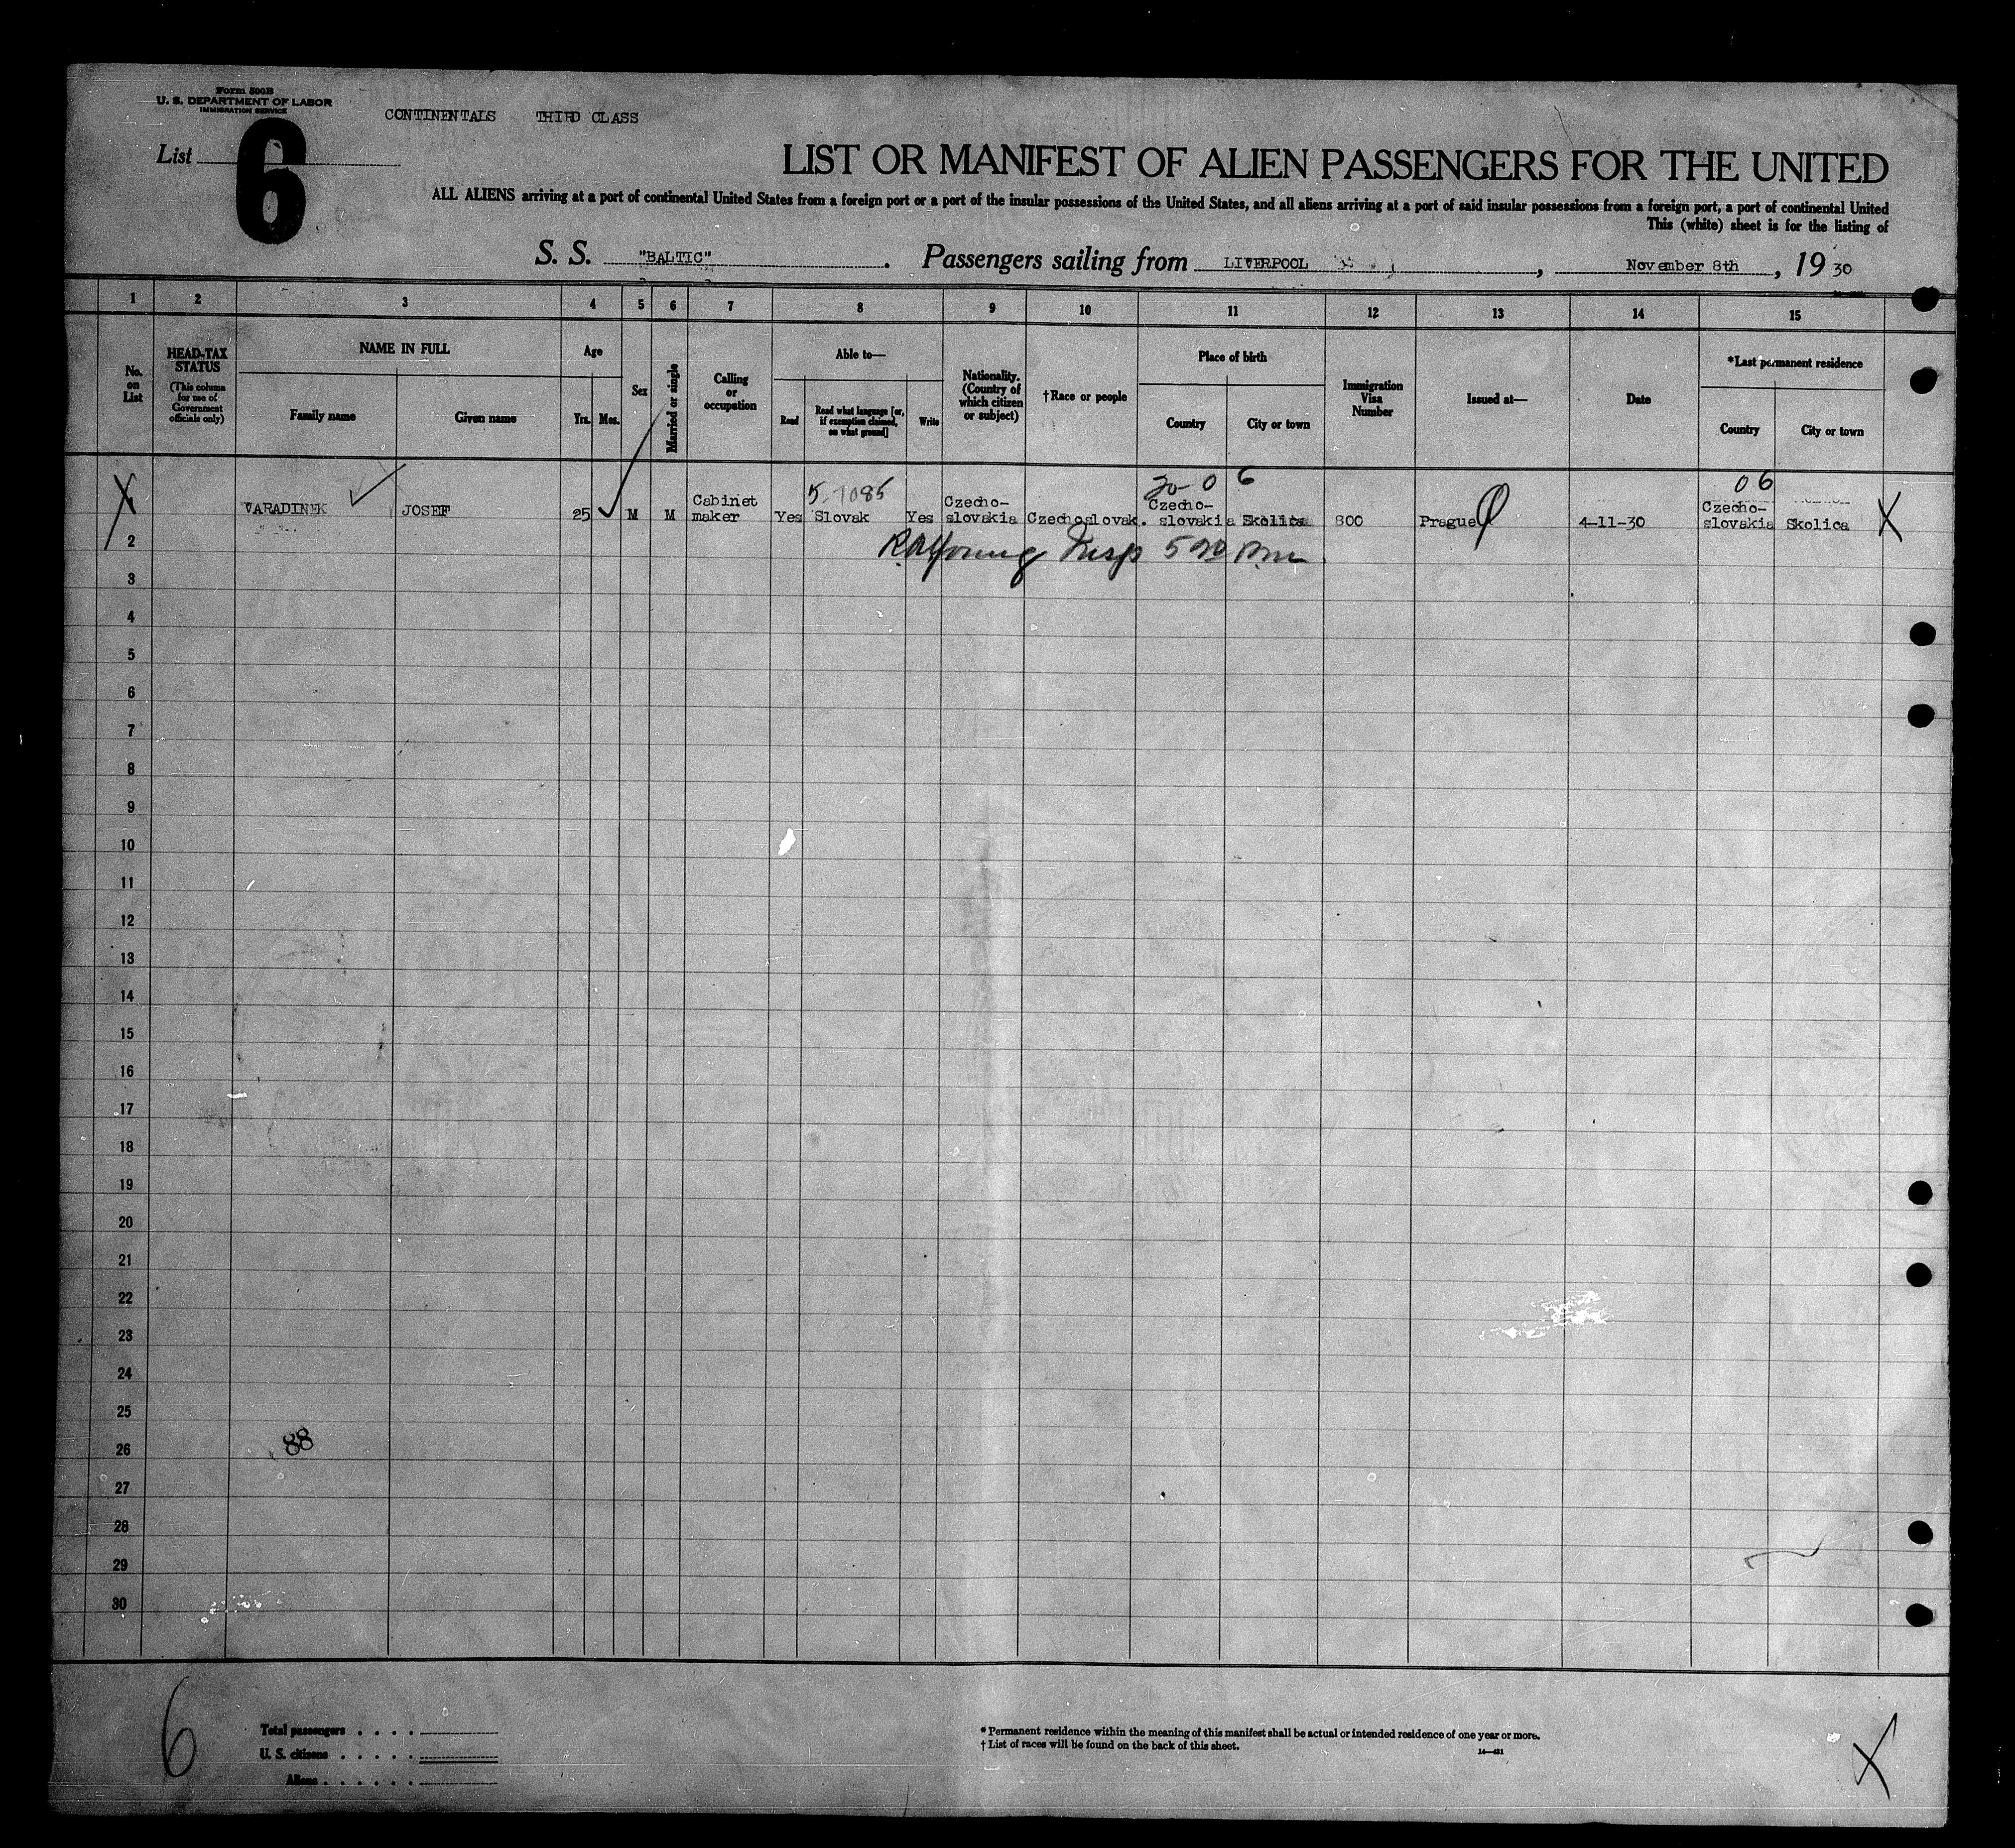 Form 500B
U. S. DEPARTMENT OF LABOR
IMMIGRATION SERVICE
CONTINENTALS THIRD CLASS
List 6
LIST OR MANIFEST OF ALIEN PASSENGERS FOR THE UNITED
ALL ALIENS arriving at a port of continental United States from a foreign port or a port of the insular possessions of the United States, and all aliens arriving at a port of said insular possessions from a foreign port, a port of continental United
This (white) sheet is for the listing of
S. S. "BALTIC". Passengers sailing from LIVERPOOL, November 8th, 19 30
1 2 3 4 5 6 7 8 9 10 11 12 13 14 15
No. on List
HEAD-TAX STATUS
(This column for use of Government officials only)
NAME IN FULL
Family name
Given name
Age
Yrs. Mos.
Sex
Married or single
Calling or occupation
Able to—
Read
Read what language [or, if exemption claimed, on what ground]
Write
Nationality. (Country of which citizen or subject)
†Race or people
Place of birth
Country
City or town
Immigration Visa Number
Issued at—
Date
*Last permanent residence
Country
City or town
20- 0 6
06
VARADINEK JOSEF 25 M M Cabinet maker Yes Slovak Yes Czecho-slovakia Czechoslovak. Czecho-slovakia Skolica 800 Prague 4-11-30 Czecho-slovakia Skolica
2
3
4
5
6
7
8
9
10
11
12
13
14
15
16
17
18
19
20
21
22
23
24
25
26
88
27
28
29
30
6
Total passengers . . . .
U. S. citizens . . . . .
Aliens . . . . . .
* Permanent residence within the meaning of this manifest shall be actual or intended residence of one year or more.
† List of races will be found on the back of this sheet.
14—421